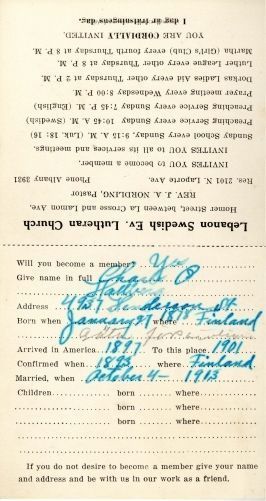 Lebanon Swedish Ev. Lutheran Church
Homer Street, between La Crosse and Lamon Ave.
REV. J. A. NORDLING, Pastor,
Res. 2101 N. Laporte Ave. Phone Albany 3931
INVITES YOU to become a member.
INVITES YOU to all its services and meetings.
Sunday School every Sunday, 9:15 A. M. (Luk. 18: 16)
Preaching every Sunday 10:45 A. M. (Swedish)
Preaching Service every Sunday 7:45 P. M. (English)
Prayer meeting every Wednesday 8:00 P. M.
Dorkas Ladies Aid every other Thursday at 2 P. M.
Luther League every other Thursday at 8 P. M.
Martha (Girl's Club) every fourth Thursday at 8 P. M.
YOU ARE CORDIALLY INVITED.
I dag är frälsningens dag.
Will you become a member? Yes
Give name in full
Address Henderson St.
Born when January 21 1871 where Finland
Arrived in America 1897 To this place 1901
Confirmed when 1893 where Finland
Married, when October 4 - 1913
Children born where
born where
born where
If you do not desire to become a member give your name
and address and be with us in our work as a friend.